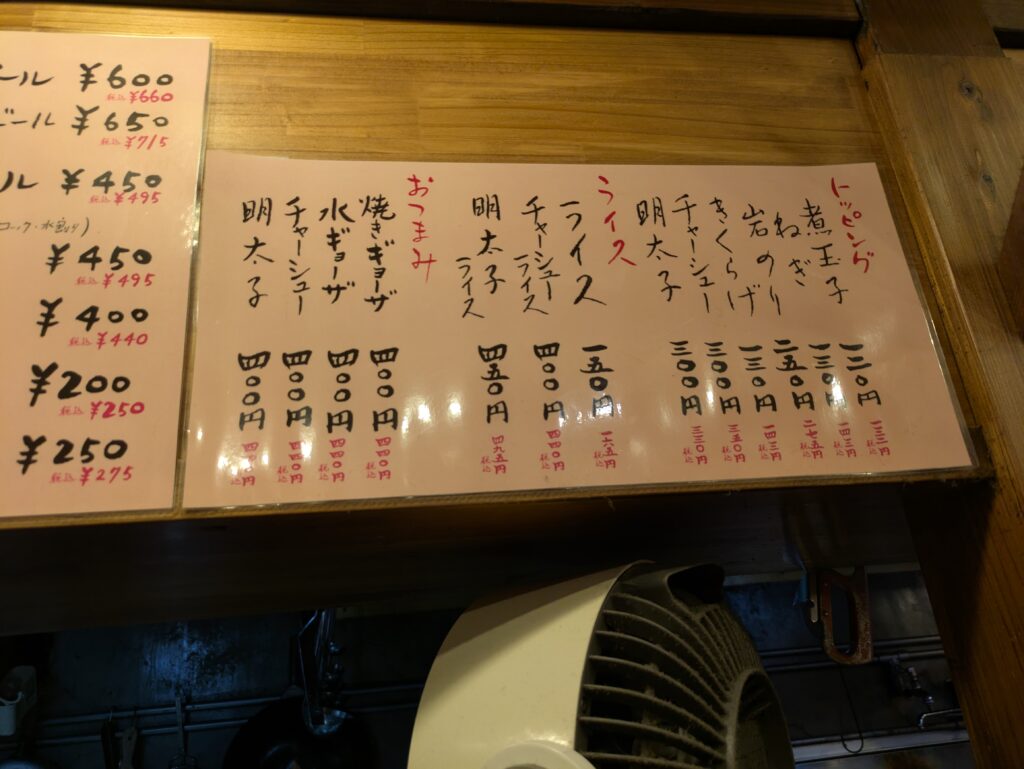 ール ¥600
税込 ¥660
ビール ¥650
税込 ¥715
ル ¥450
税込 ¥495
¥450
税込 ¥495
¥400
税込 ¥440
¥200
税込 ¥250
¥250
税込 ¥275
トッピング
煮玉子 一二〇円 税込 一三二円
ねぎ 一三〇円 税込 一四三円
岩のり 二五〇円 税込 二七五円
きくらげ 一三〇円 税込 一四三円
チャーシュー 三〇〇円 税込 三五〇円
明太子 三〇〇円 税込 三三〇円
ライス
ライス 一五〇円 税込 一六五円
チャーシューライス 四〇〇円 税込 四四〇円
明太子ライス 四五〇円 税込 四九五円
おつまみ
焼きギョーザ 四〇〇円 税込 四四〇円
水ギョーザ 四〇〇円 税込 四四〇円
チャーシュー 四〇〇円 税込 四四〇円
明太子 四〇〇円 税込 四四〇円